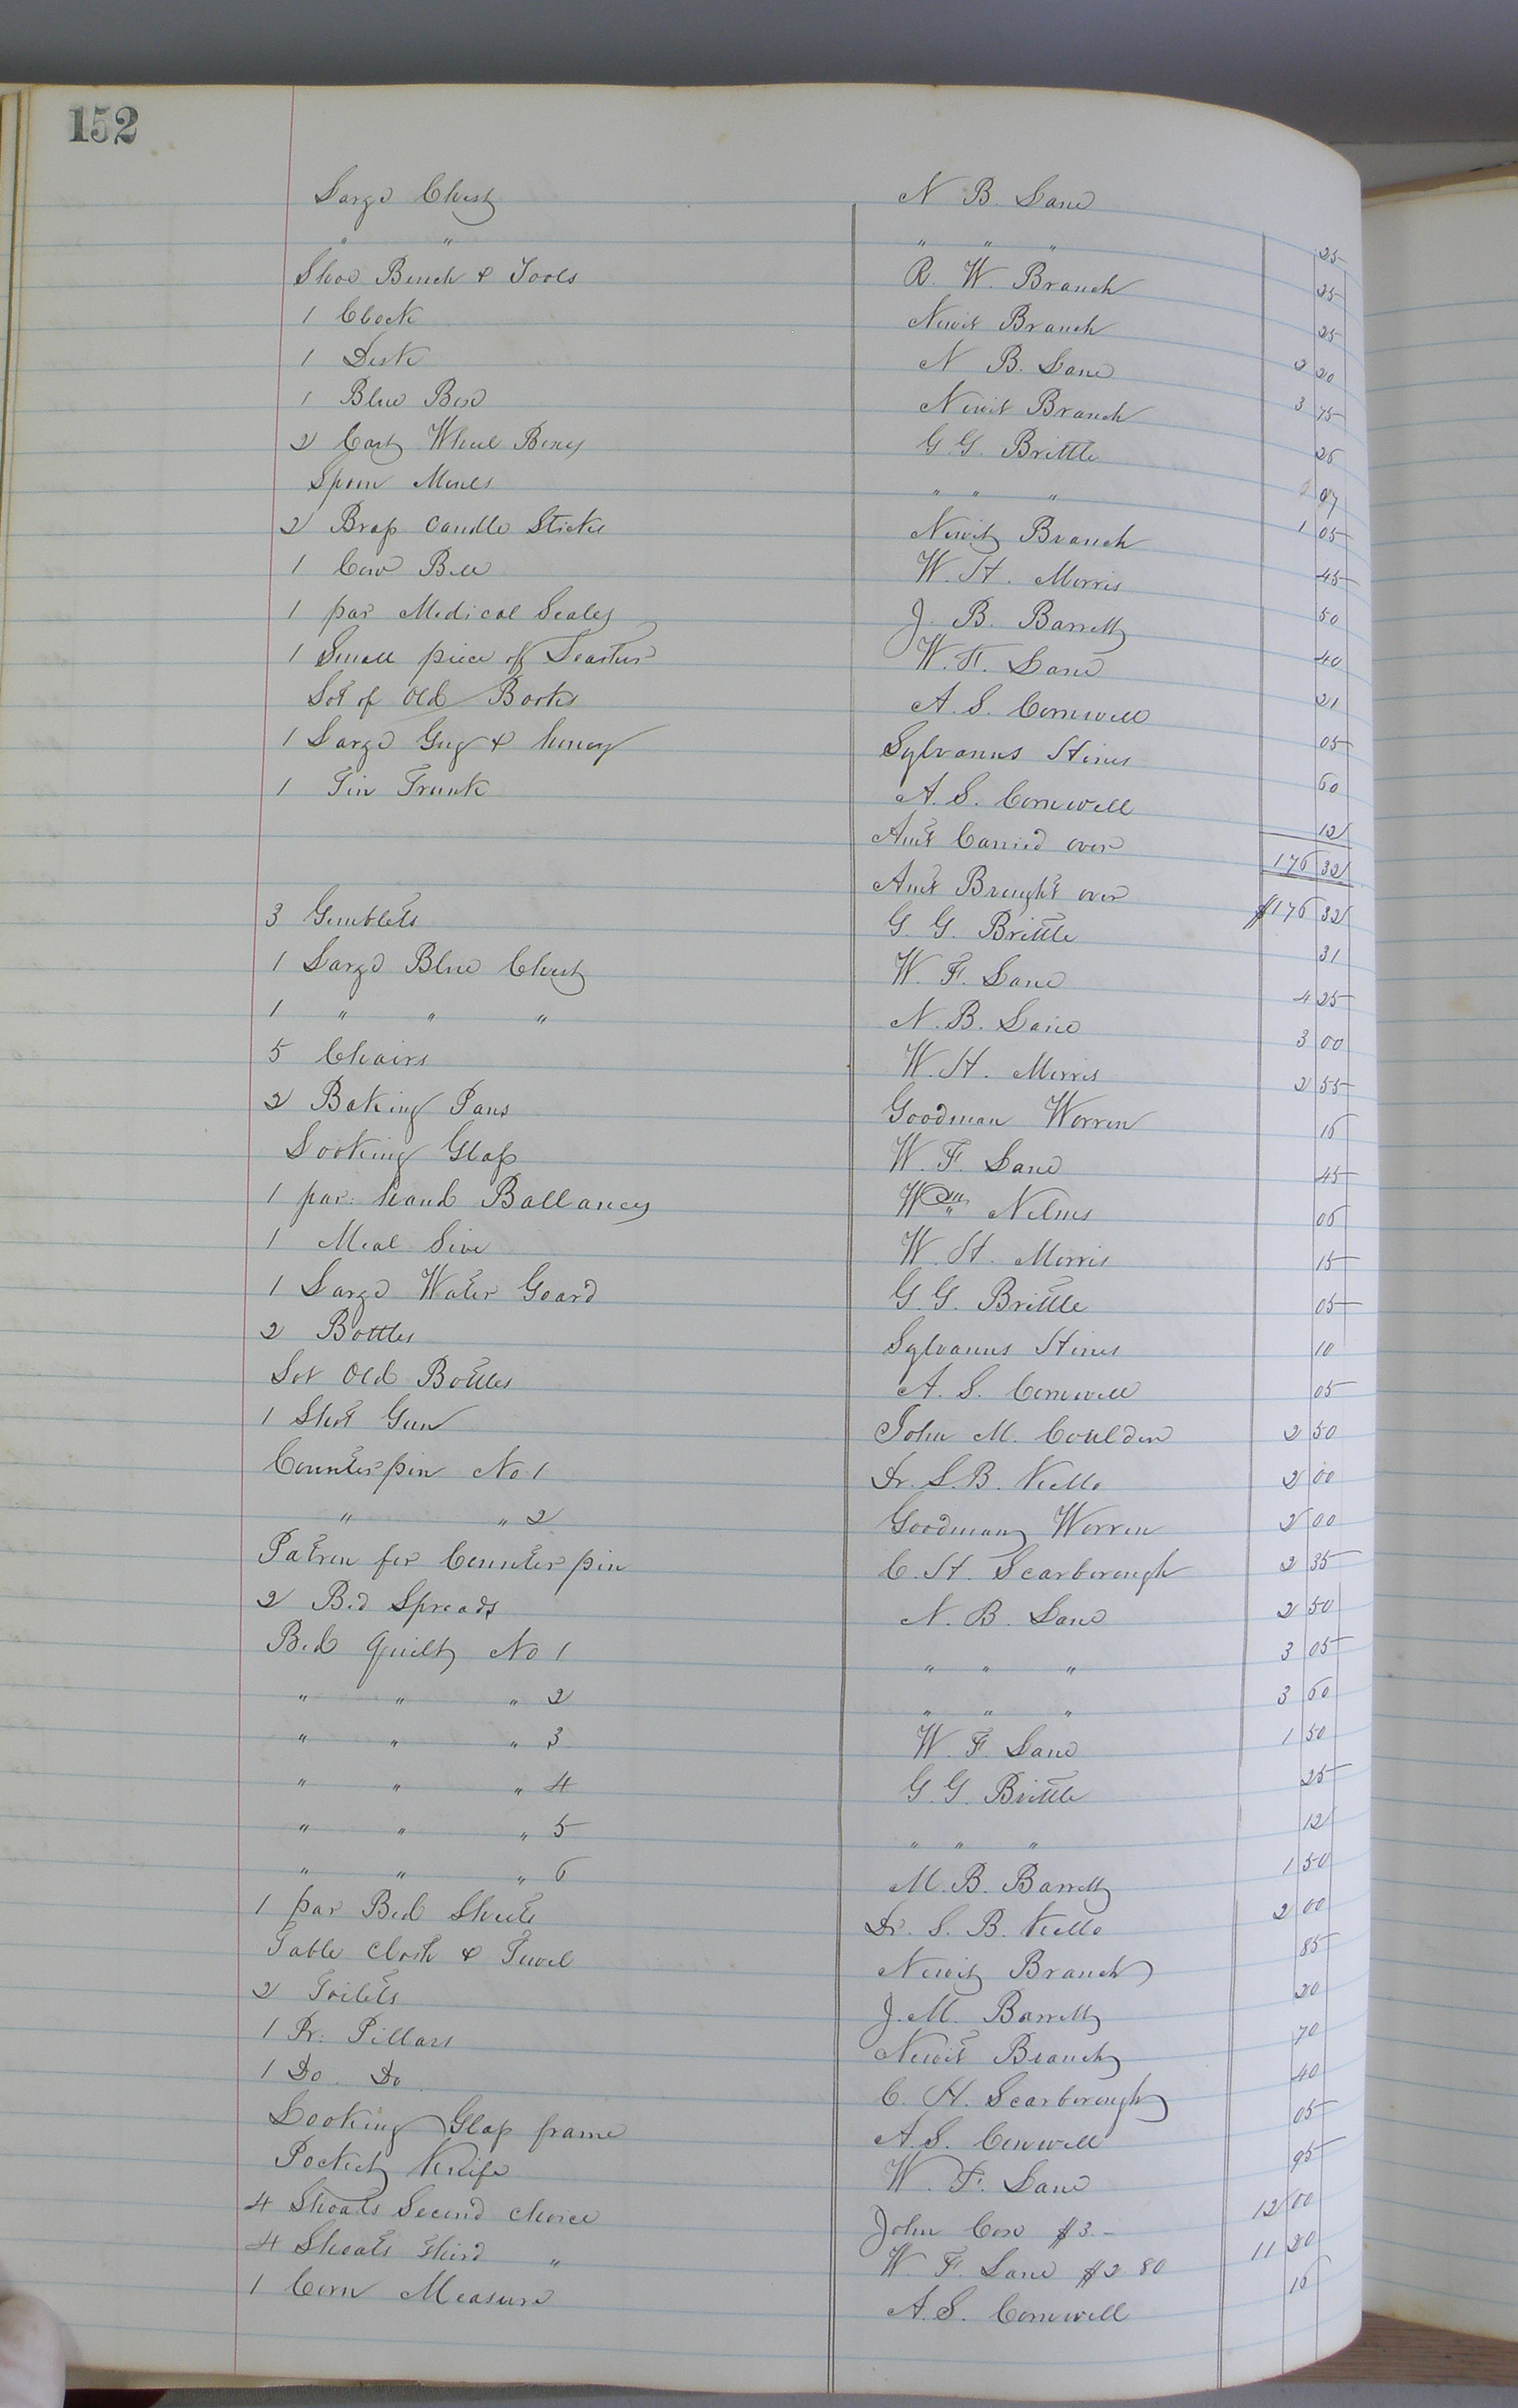 152
Large Chest N B. Lane 25
" " " " " 25
Shoe Bench & Tools R. W. Branch 25
1 Clock Newit Branch 2 20
1 Desk N B. Lane 3 75
1 Blue Box Newit Branch 26
2 Cart Wheel Boxes G. G. Brittle 07
Spoon Moles " " " 1 05
2 Brass Candle Sticks Newit Branch 45
1 Cow Bell W. H. Morris 50
1 par Medical Scales J. B. Barrett 40
1 Small piece of Leather W. F. Lane 21
Lot of Old Books A. S. Cornwell 05
1 Large Gug & huney Sylvanus Stines 60
1 Tin Trunk A. S. Cornwell 12
Amt Carried over 176 32
Amt Brought over $176 32
3 Gimblets G. G. Brittle 31
1 Large Blue Chest W. F. Lane 4 25
1 " " " N. B. Lane 3 00
5 Chairs W. H. Morris 2 55
2 Baking Pans Goodman Worren 16
Looking Glass W. F. Lane 45
1 par. hand Ballances Wm Nelms 06
1 Meal Sive W. H. Morris 15
1 Large Water Goard G. G. Brittle 05
2 Bottles Sylvanus Stines 10
Lot Old Bottles A. S. Cornwell 05
1 Shot Gun John M. Coulden 2 50
Counterpin No 1 Dr. S. B. Kello 2 00
" " 2 Goodman Worren 2 00
Patren for Counterpin C. H. Scarborough 2 35
2 Bed Spreads N. B. Lane 2 50
Bed quilt No 1 " " " 3 05
" " " 2 " " " 3 60
" " " 3 W. F. Lane 1 50
" " " 4 G. G. Brittle 25
" " " 5 " " " 12
" " " 6 M. B. Barrett 1 50
1 par Bed Sheets Dr. S. B. Kello 2 00
Table cloth & Towel Newit Branch 85
2 Toilets J. M. Barrett 20
1 Pr. Pillars Newit Branch 70
1 Do. Do C. H. Scarborough 40
Looking Glass frame A. S. Cornwell 05
Pocket Knife W. F. Lane 95
4 Shoats Second choice John Cox $3.- 12 00
4 Shoats third " W. F. Lane $2 80 11 20
1 Corn Measure A. S. Cornwell 16